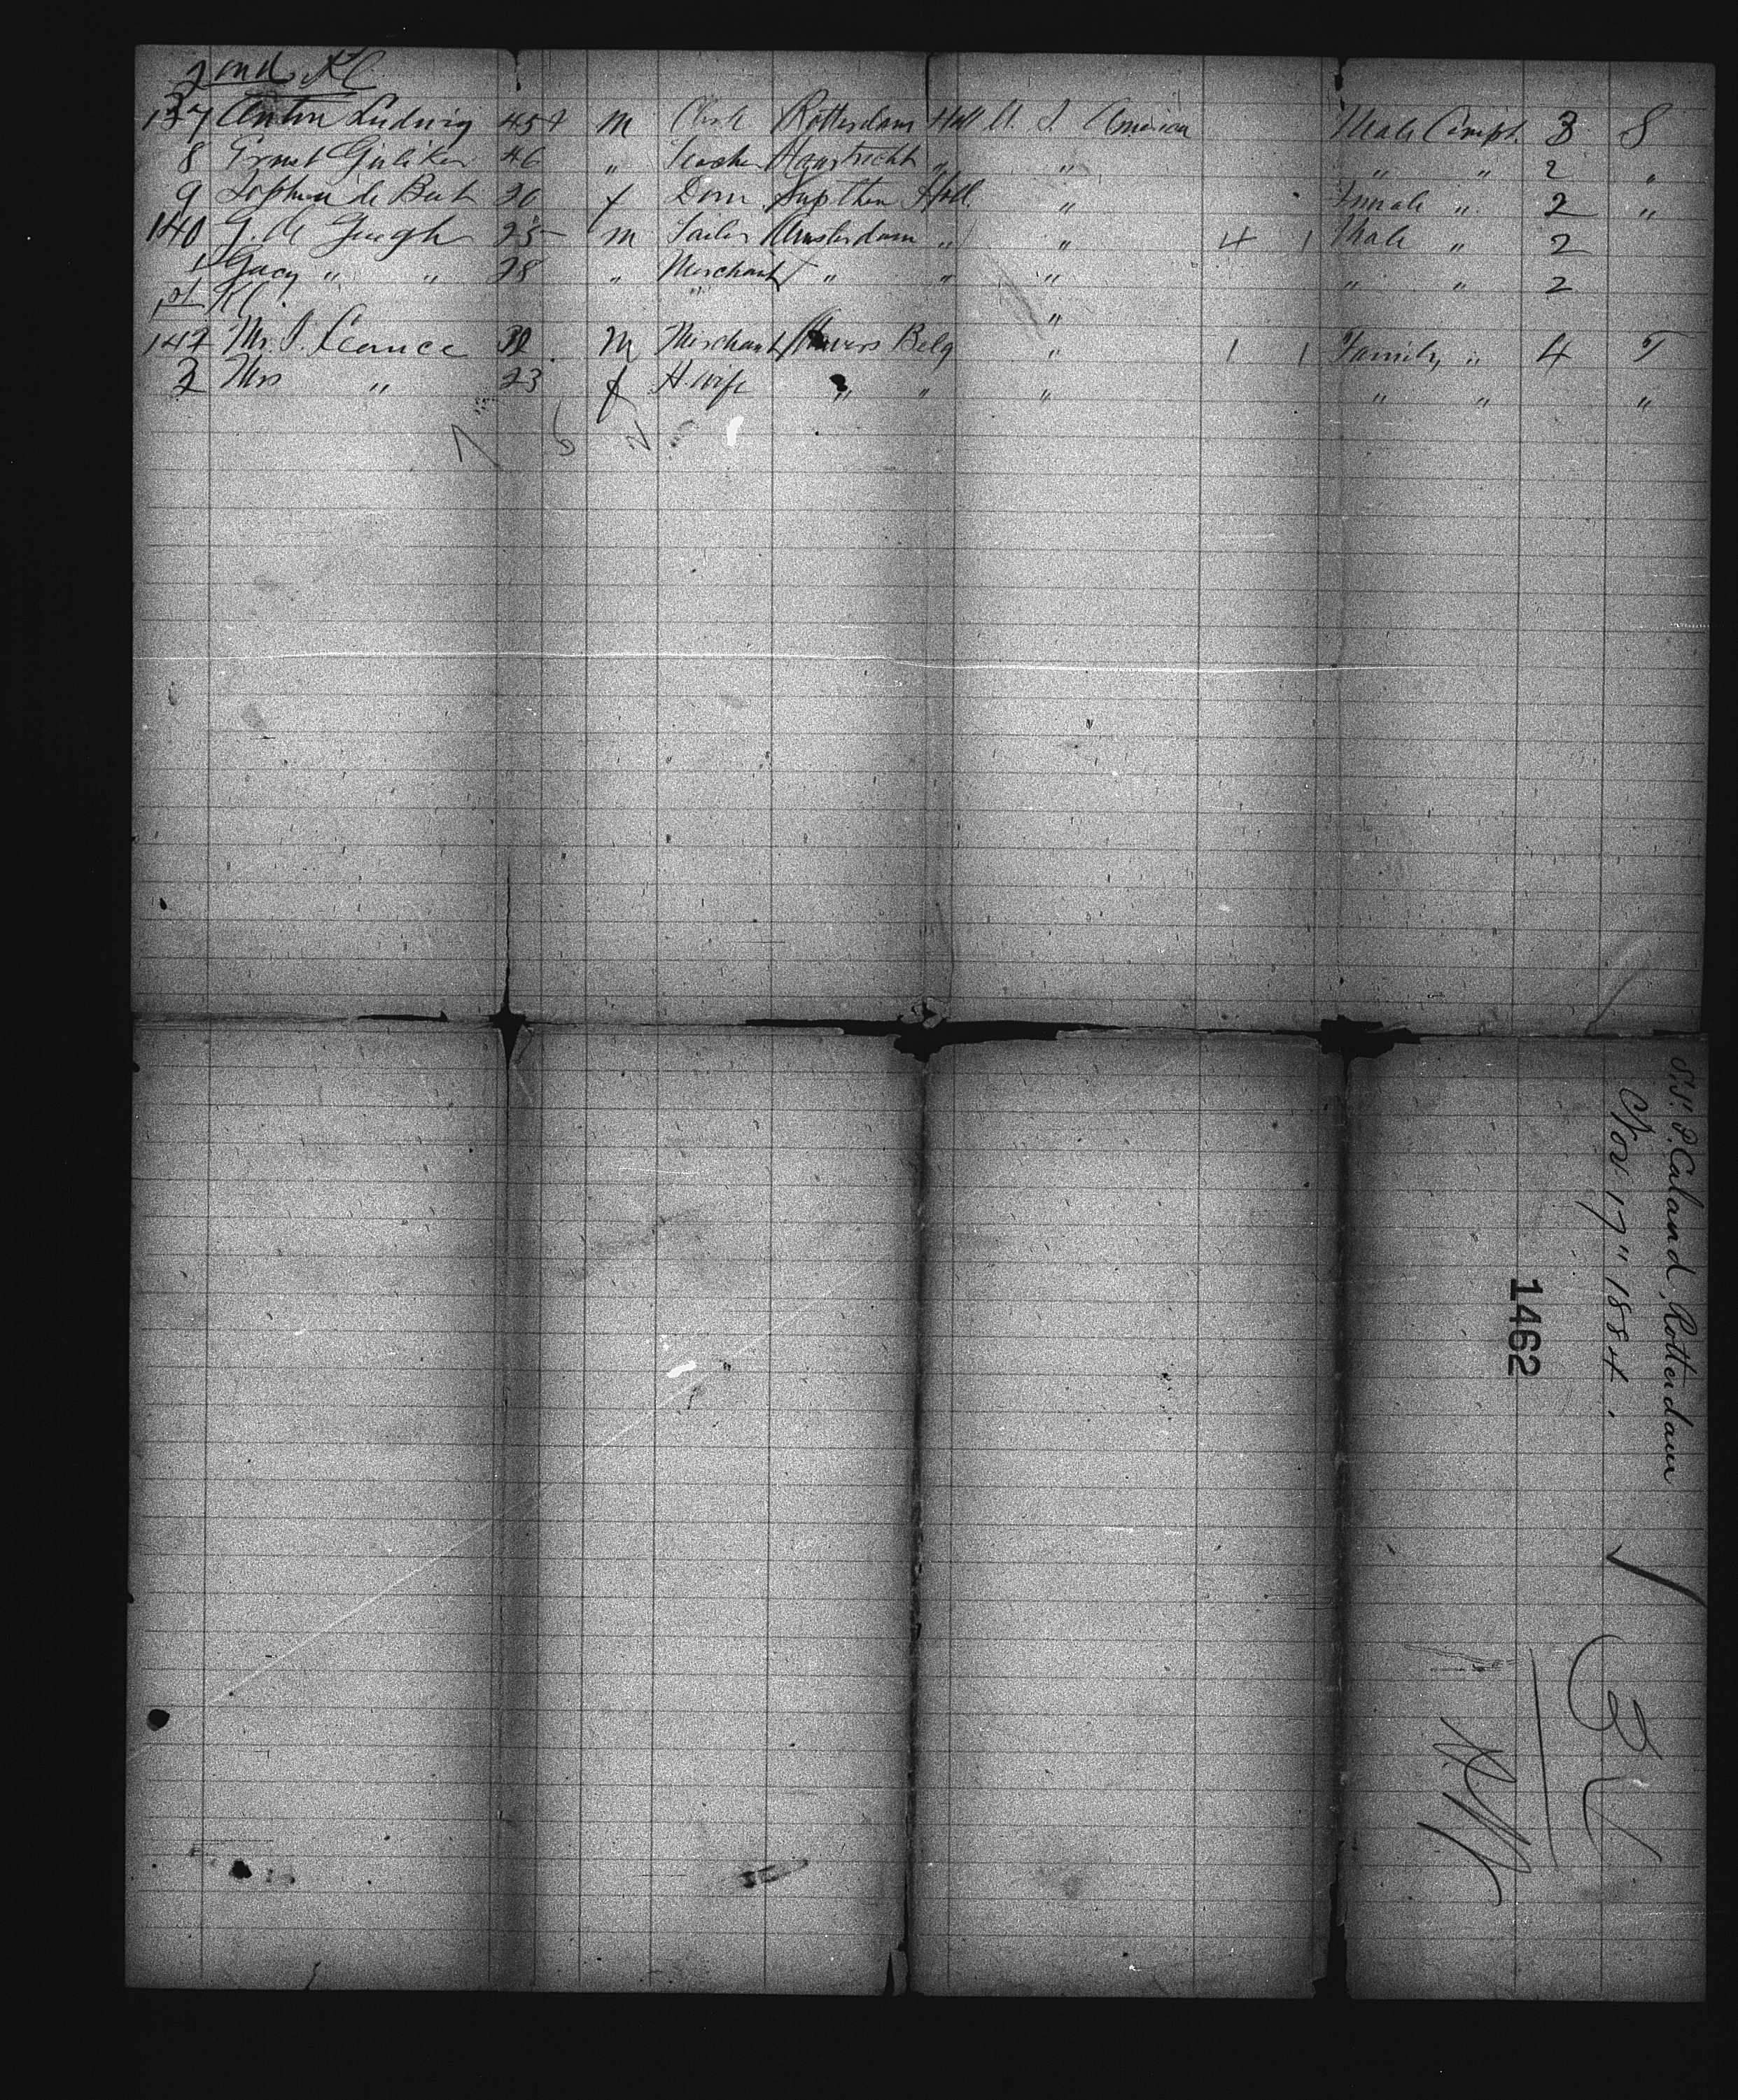 2nd Kl.
137 Anton Ludwig 45 m Clerk Rotterdam Holl U. S. America Male Compt. 3 S
8 Ernst 46 " Teacher Maastricht " " " " 2 "
9 Sophia de 26 f Dom Zupthen Holl. " Female " 2 "
140 G. de 25 m Tailor Amsterdam " " 4 1 Male " 2
1 " " 28 " Merchant " " " " " 2
1st Kl. "
142 Mr. 32 M Merchant Anvers Belg " 1 1 Family " 4 T
3 Mrs " 23 f H. wife " " " " " "
7 5 2
S.S. P. Caland, Rotterdam
Nov. 17" 1884.
1462